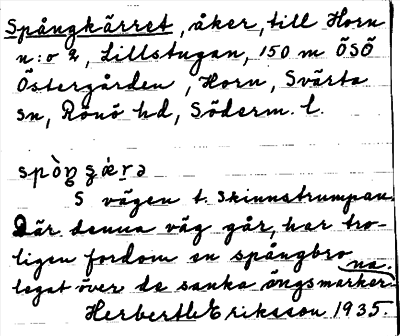 Spångkärret, åker, till Horn
n:o 2, Lillstugan, 150 m ÖSÖ
Östergården, Horn, Svärta
sn, Rönö hd, Söderm. l.
S vägen t. Skinnstrumpan.
Där denna väg går, har tro-
ligen fordom en spångbro
legat över de sanka ängsmarkerna.
Herbert Eriksson 1935.